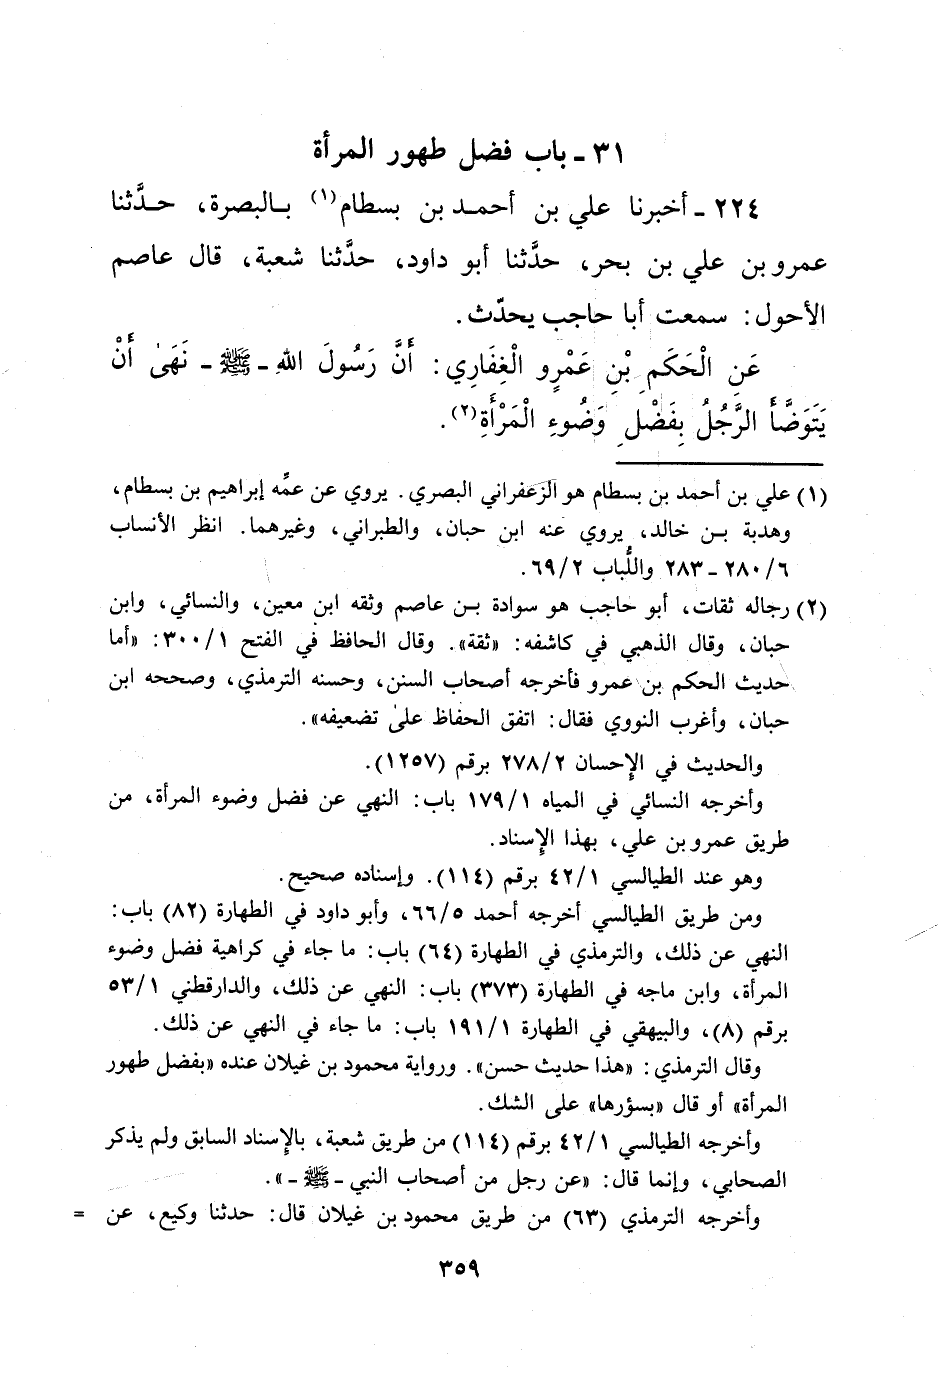 ٣١ - باب فضل طهور المرأة
٢٢٤ - أخبرنا علي بن أحمد بن بسطام(١) بالبصرة، حدَّثنا
عمرو بن علي بن بحر، حدَّثنا أبو داود، حدَّثنا شعبة، قال عاصم
الأحول: سمعت أبا حاجب يحدّث.
عَنِ الْحَكَمِ بْنِ عَمْرٍو الْغِفَارِي: أَنَّ رَسُولَ اللهِ - ﷺ - نَهَىٰ أَنْ
يَتَوَضَّأَ الرَّجُلُ بِفَضْلِ وَضُوءِ الْمَرْأَةِ(٢).
(١) علي بن أحمد بن بسطام هو الزعفراني البصري. يروي عن عمِّه إبراهيم بن بسطام،
وهدبة بن خالد، يروي عنه ابن حبان، والطبراني، وغيرهما. انظر الأنساب
٢٨٠/٦ - ٢٨٣ واللُّباب ٦٩/٢.
(٢) رجاله ثقات، أبو حاجب هو سوادة بن عاصم وثقه ابن معين، والنسائي، وابن
حبان، وقال الذهبي في كاشفه: «ثقة». وقال الحافظ في الفتح ٣٠٠/١: «أما
حديث الحكم بن عمرو فأخرجه أصحاب السنن، وحسنه الترمذي، وصححه ابن
حبان، وأغرب النووي فقال: اتفق الحفاظ علىٰ تضعيفه».
والحديث في الإحسان ٢٧٨/٢ برقم (١٢٥٧).
وأخرجه النسائي في المياه ١٧٩/١ باب: النهي عن فضل وضوء المرأة، من
طريق عمرو بن علي، بهذا الإسناد.
وهو عند الطيالسي ٤٢/١ برقم (١١٤). وإسناده صحيح.
ومن طريق الطيالسي أخرجه أحمد ٦٦/٥، وأبو داود في الطهارة (٨٢) باب:
النهي عن ذلك، والترمذي في الطهارة (٦٤) باب: ما جاء في كراهية فضل وضوء
المرأة، وابن ماجه في الطهارة (٣٧٣) باب: النهي عن ذلك، والدارقطني ٥٣/١
برقم (٨)، والبيهقي في الطهارة ١٩١/١ باب: ما جاء في النهي عن ذلك.
وقال الترمذي: «هذا حديث حسن». ورواية محمود بن غيلان عنده «بفضل طهور
المرأة» أو قال «بسؤرها» على الشك.
وأخرجه الطيالسي ٤٢/١ برقم (١١٤) من طريق شعبة، بالإسناد السابق ولم يذكر
الصحابي، وإنما قال: «عن رجل من أصحاب النبي - ﷺ -».
وأخرجه الترمذي (٦٣) من طريق محمود بن غيلان قال: حدثنا وكيع، عن =
٣٥٩